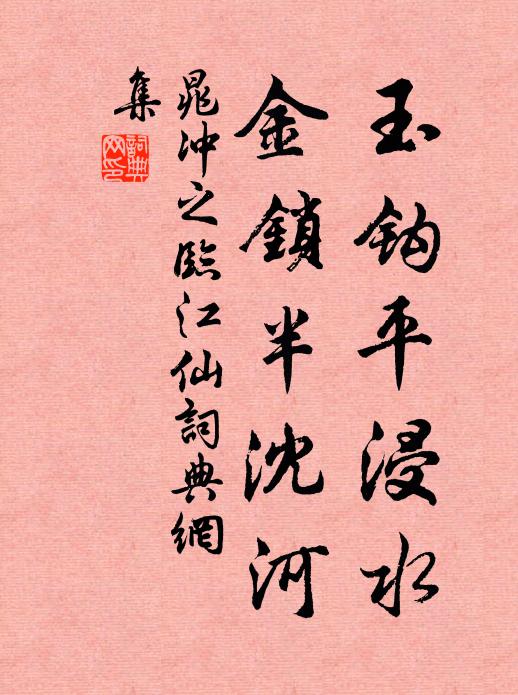 玉鈎平浸水
金鎖半沈河
晁沖之臨江仙詞典網
集
詞典網印